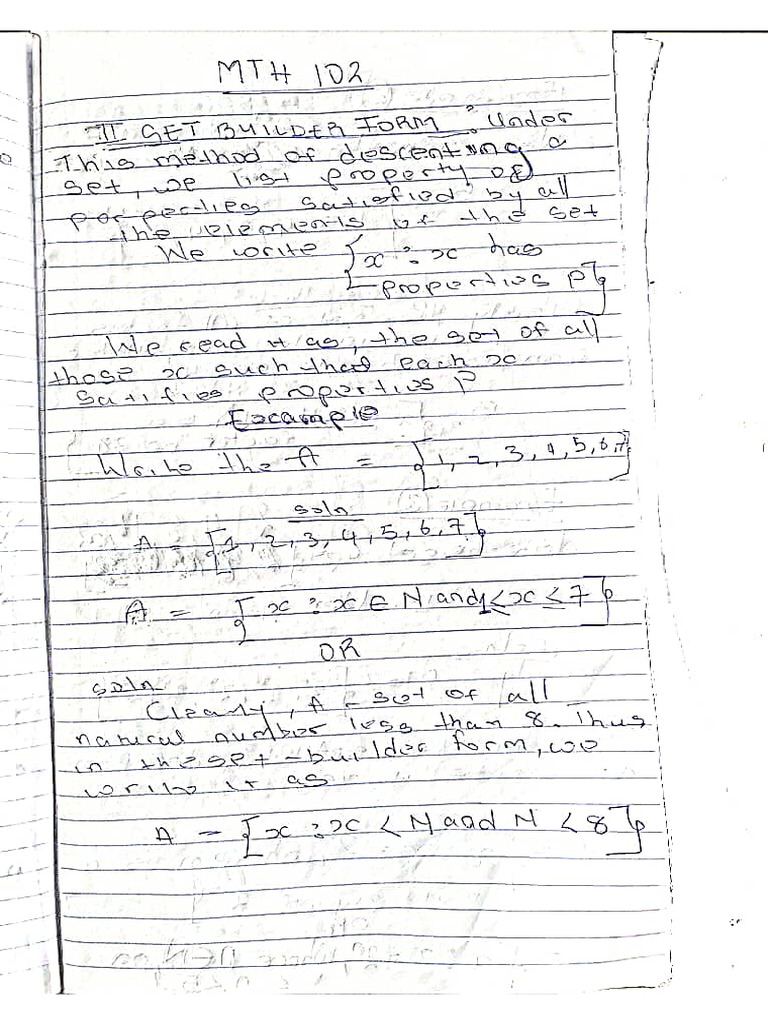 MTH 102
II SET BUILDER FORM : Under
This method of descenting a
set, we list property of
properties satisfied by all
the elements of the set
We write {x : x has
properties P}
We read it as, the set of all
those x such that each x
satifies properties P
Example
Write the A = {1, 2, 3, 4, 5, 6, 7}
soln
A = {1, 2, 3, 4, 5, 6, 7}
A = {x : x ∈ N and 1 ≤ x ≤ 7}
OR
soln
Clearly, A = set of all
natural number less than 8. Thus
in the set-builder form, we
write it as
A = {x : x < N and N < 8}